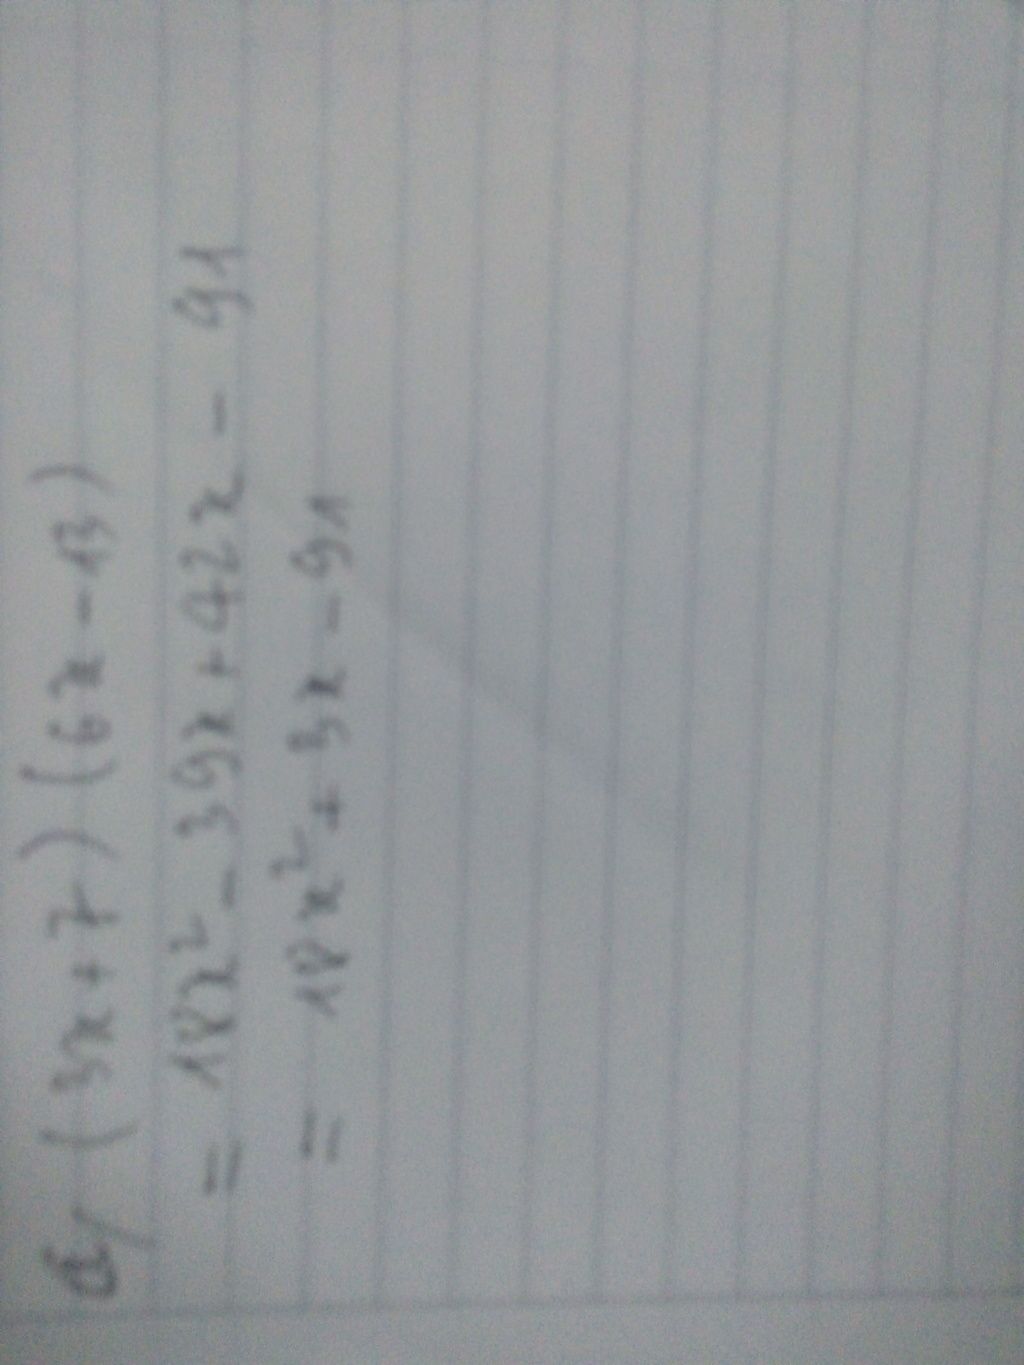 a/ (3x+7)(6x-13)
= 18x² - 39x + 42x - 91
= 18x² + 3x - 91